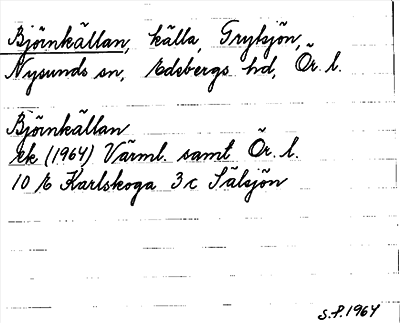 Björnkällan, källa, Grytsjön,
Nysunds sn, Edsbergs hd, Ör. l.
Björnkällan
ek (1964) Värml. samt Ör. l.
10 E Karlskoga 3c Sälsjön
S.P. 1964